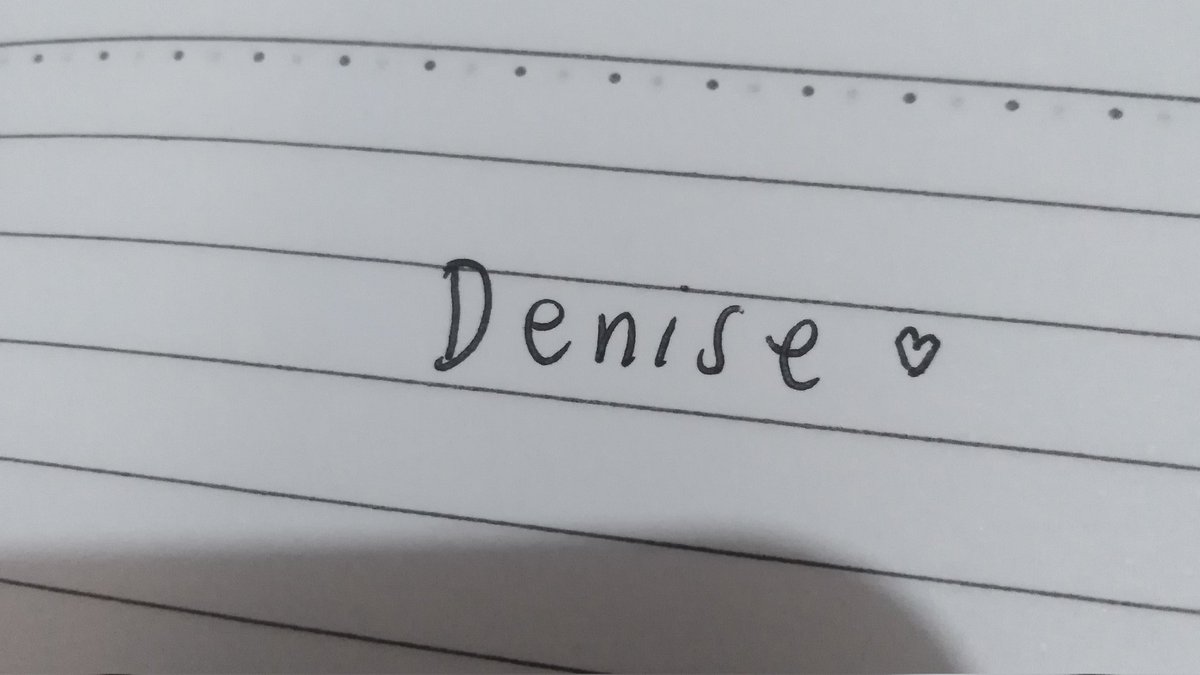 Denise ♡